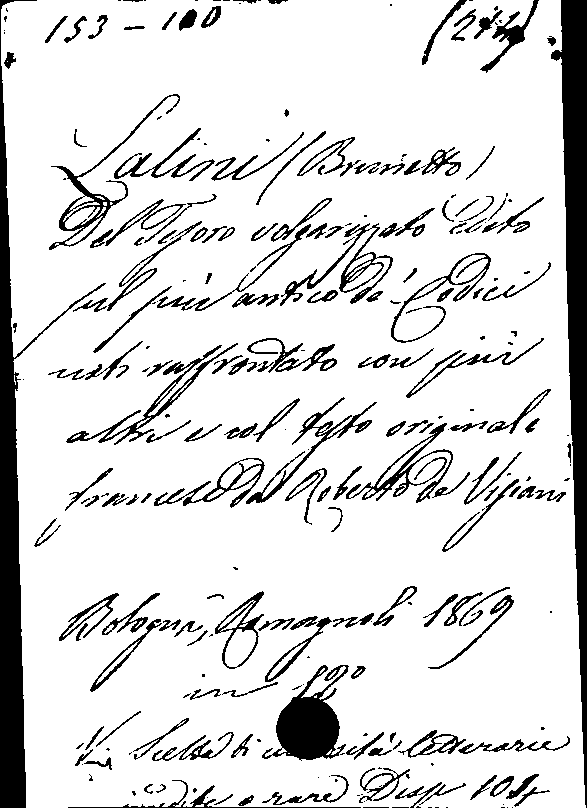 153 - 100
Latini (Brunetto)
Del Tesoro volgarizzato Edito
sul più antico de' Codici
noti raffrontato con più
altri e col testo originale
francese da Roberto de Visiani
Bologna, Romagnoli 1869
in 12º
Scelta di curiosità letterarie
inedite o rare Disp 104